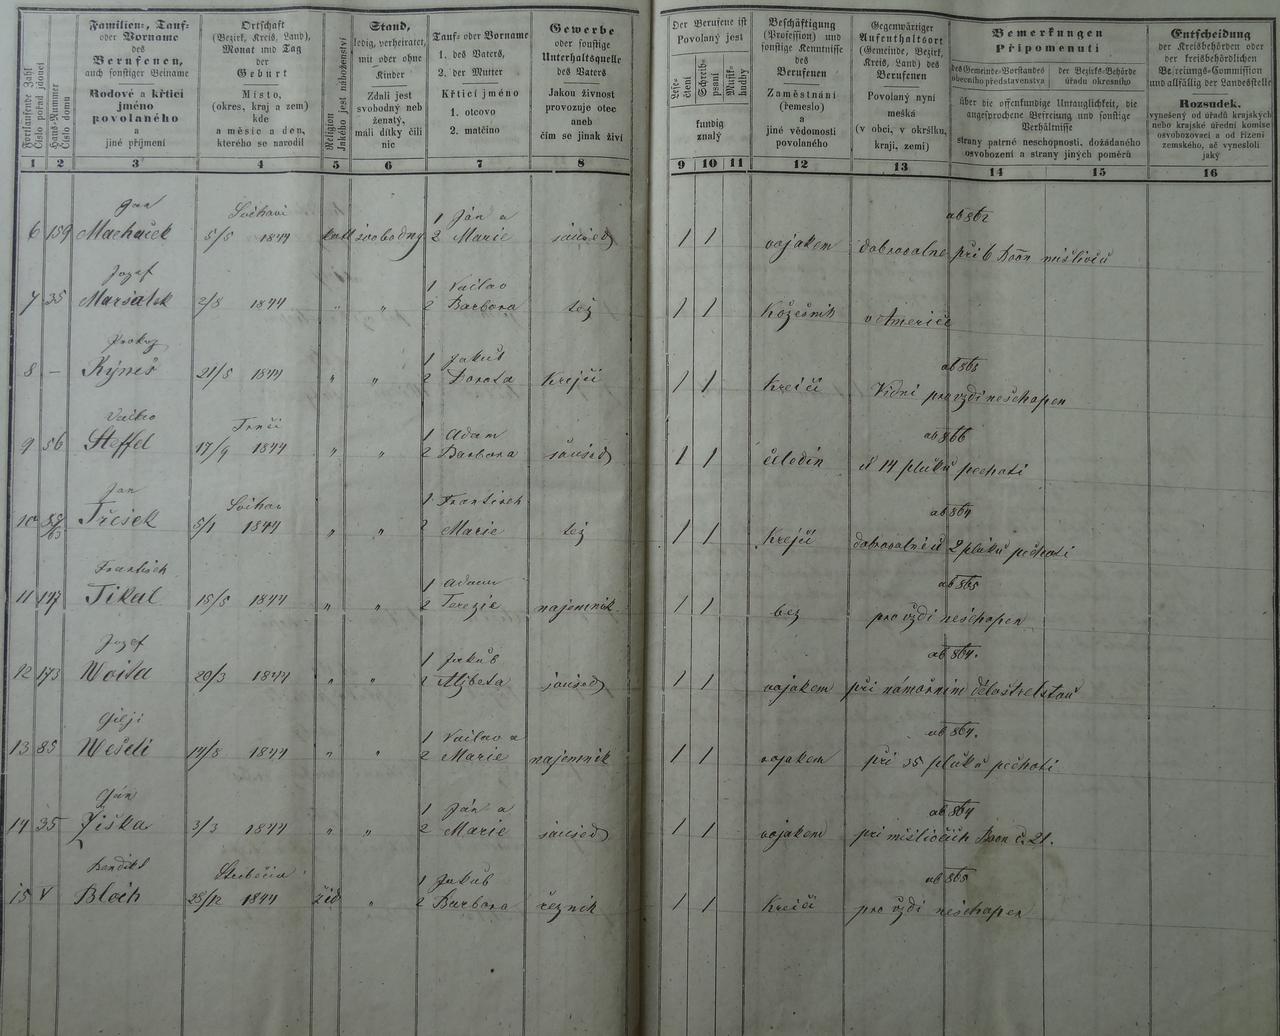 Fortlaufende Zahl
Číslo pořád jdoucí
Haus-Nummer
Číslo domu
Familien-, Tauf-
oder Vorname
des
Berufenen,
auch sonstiger Beiname
Rodové a křticí
jméno
povolaného
a
jiné příjmení
Ortschaft
(Bezirk, Kreis, Land),
Monat und Tag
der
Geburt
Místo,
(okres, kraj a zem)
kde
a měsíc a den,
kterého se narodil
Religion
Jakého jest náboženství
Stand,
ledig, verheiratet,
mit oder ohne
Kinder
Zdali jest
svobodný neb
ženatý,
máli dítky čili
nic
Tauf- oder Vorname
1. des Vaters,
2. der Mutter
Křticí jméno
1. otcovo
2. matčino
Gewerbe
oder sonstige
Unterhaltsquelle
des Vaters
Jakou živnost
provozuje otec
aneb
čím se jinak živí
Der Berufene ist
Povolaný jest
Lese-
čtení
Schreib-
psaní
Musik-
hudby
kundig
znalý
Beschäftigung
(Profession) und
sonstige Kenntnisse
des
Berufenen
Zaměstnání
(řemeslo)
a
jiné vědomosti
povolaného
Gegenwärtiger
Aufenthaltsort
(Gemeinde, Bezirk,
Kreis, Land) des
Berufenen
Povolaný nyní
mešká
(v obci, v okršku,
kraji, zemi)
Bemerkungen
Připomenutí
des Gemeinde-Vorstandes
obecního představenstva
der Bezirks-Behörde
úřadu okresního
über die offenkundige Untauglichkeit, die
angesprochene Befreiung und sonstige
Verhältnisse
strany patrné neschopnosti, dožádaného
osvobození a strany jiných poměrů
Entscheidung
der Kreisbehörden oder
der kreisbehördlichen
Befreiungs-Commission
und allfällig der Landesstelle
Rozsudek,
vynešený od úřadů krajských
nebo krajské úřední komise
osvobozovací a od řízení
zemského, ač vynesloli
jaký
1 2 3 4 5 6 7 8 9 10 11 12 13 14 15 16
Jan
6 159 Machaček 5/5 1844 kath svobodny 1 Ján a 2 Marie soused 1 1 vojakem dobrovolne při 6 Baon mislivcu
Jozef
7 35 Maršalek 2/8 1844 " " 1 Vaclav 2 Barbora též 1 1 Kožešnik v Americe
Prokop
8 — Kýneš 21/5 1844 " " 1 Jakub 2 Dorota Krejčí 1 1 Krejčí Vidni pro vždi neschopen
9 56 Steffel 17/9 1844 " " 1 Adam 2 Barbora soused 1 1 čeledin u 14 pluku pechoti
Jan
10 Třešek 5/1 1844 " " 1 Frantisek 2 Marie též 1 1 Krejčí dobrovolni u 2 pluku pechoti
Frantisek
11 147 Tikal 15/5 1844 " " 1 Adam 2 Terezie najemnik 1 1 bez pro vždi neschopen
Jozef
12 173 Woita 20/3 1844 " " 1 Jakub 2 Alžbeta soused 1 1 vojakem při námořnim dělostrelstvu
Giljí
13 85 Weselí 14/8 1844 " " 1 Vaclav a 2 Marie najemnik 1 1 vojakem při 35 pluku pechoti
Ján
14 35 Žiška 3/3 1844 " " 1 Ján a 2 Marie soused 1 1 vojakem pri mislivcich Baon č. 21.
15 V Bloch 25/12 1844 žid " 1 Jakub 2 Barbora řeznik 1 1 Krejčí pro vždi neschopen